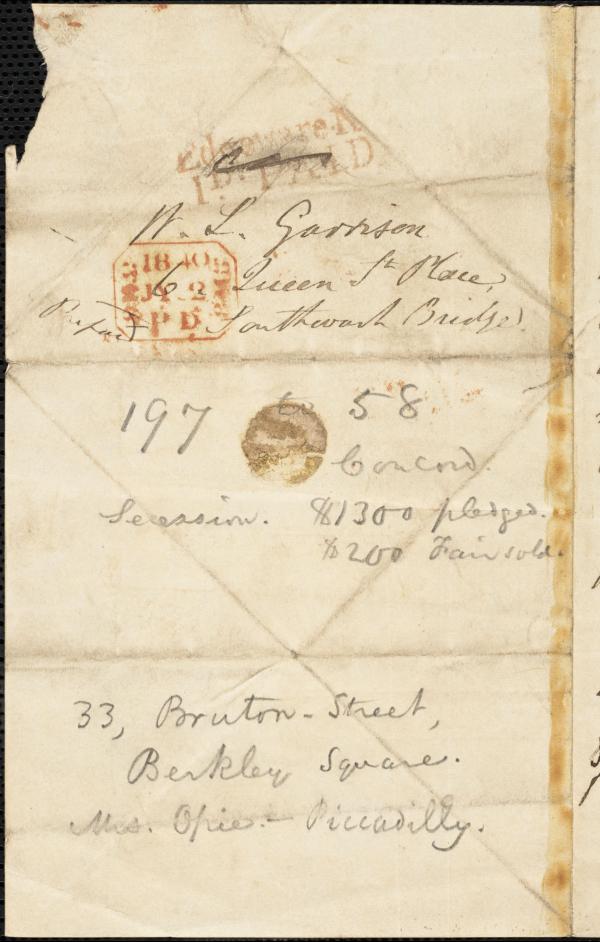 Edgware R
1D. PAID
W. L. Garrison
6. Queen St Place,
Southwark Bridge.
Pre paid
1840
2
PD
197 to 58
Concord.
Secession. $1300 pledged.
$200 Fair sold.
33, Bruton-Street,
Berkley Square.
Mrs. Opie - Piccadilly.